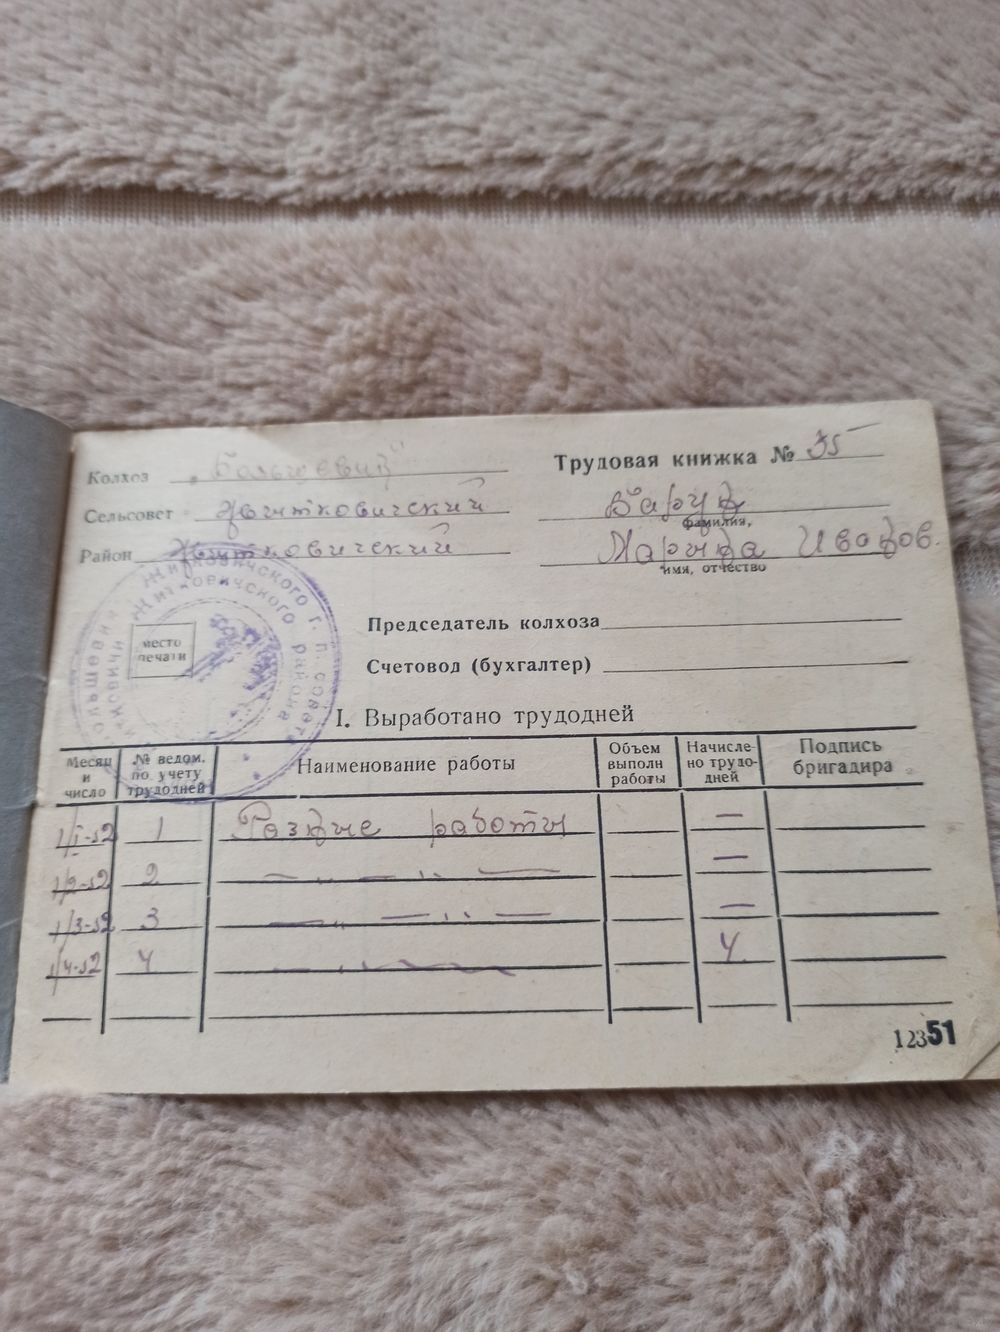 Колхоз „Большевик"
Трудовая книжка № 35
Сельсовет Житковичский
Район Житковичский
фамилия,
Марина Иванов.
имя, отчество
Житковичского г. п. совета
Житковичского района
место
печати
Председатель колхоза
Счетовод (бухгалтер)
I. Выработано трудодней
Месяц и число | № ведом. по учету трудодней | Наименование работы | Объем выполн работы | Начисле-но трудо-дней | Подпись бригадира
1/1-52 1 Разные работы —
1/2-52 2 — „ — „ — —
1/3-52 3 — „ — „ — —
1/4-52 4 — „ — 4
12351